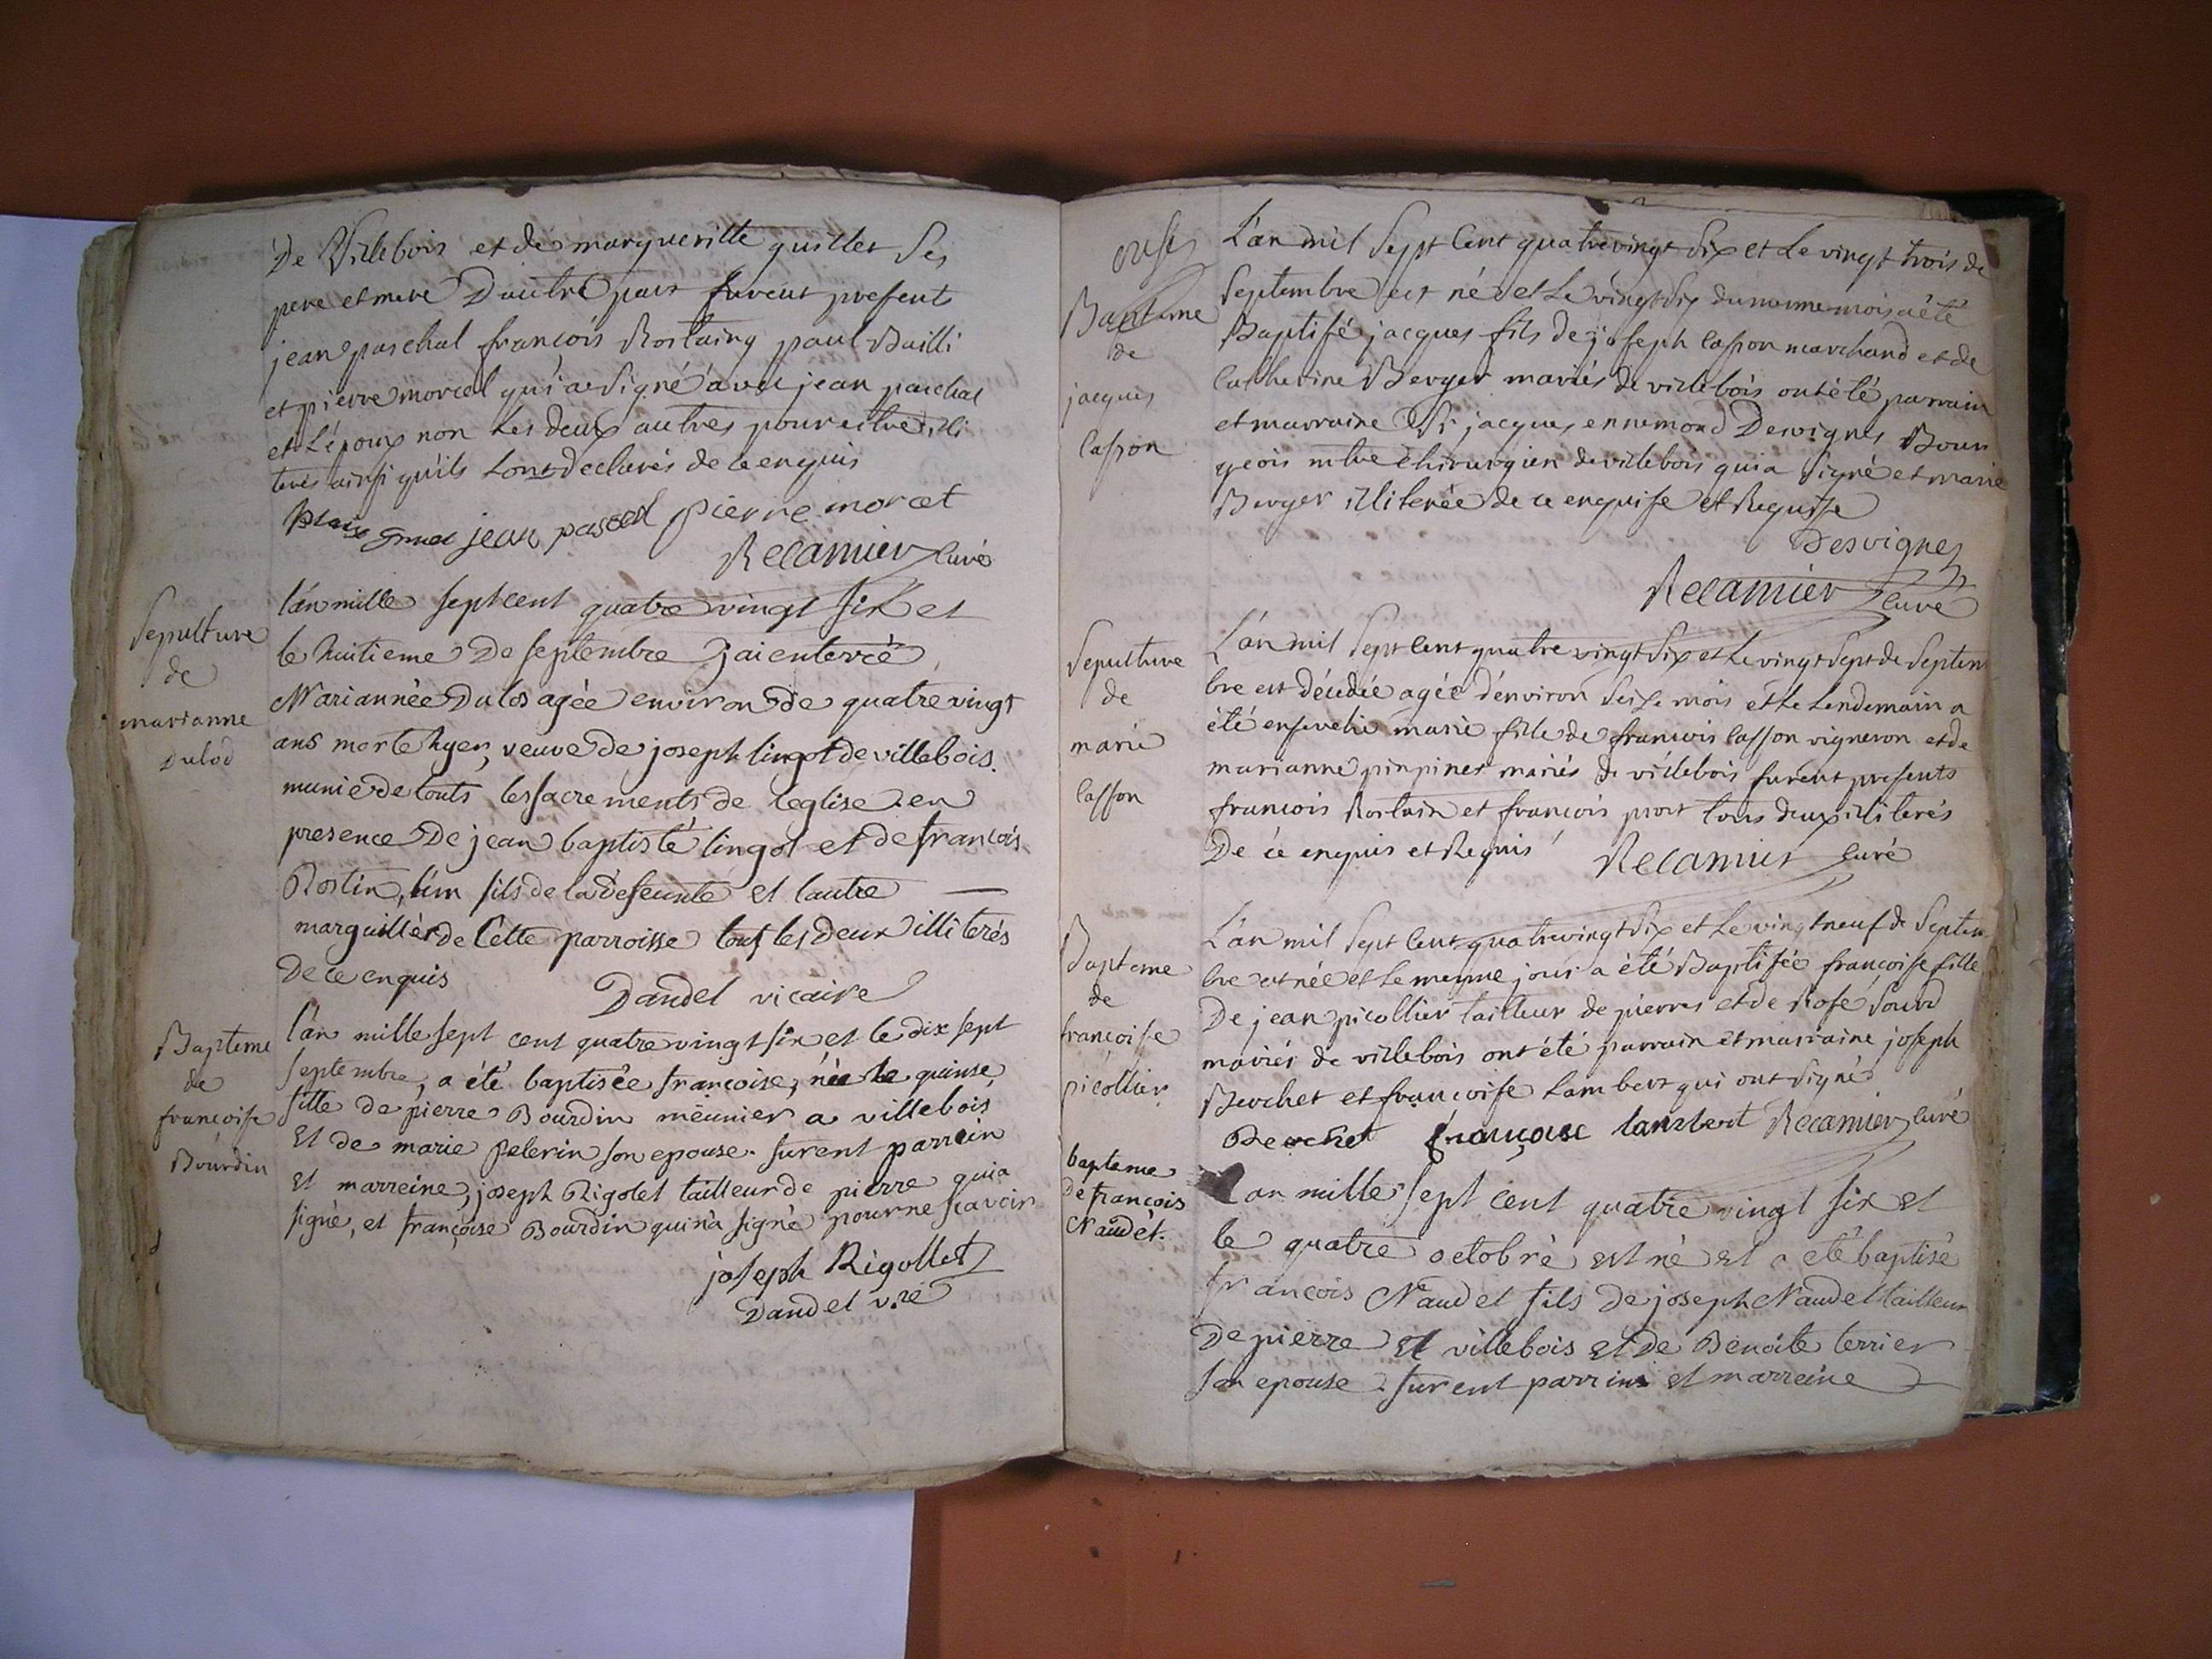 De Villebois et de margueritte guillet Ses
pere et mere D'autre part furent presents
jean paschal françois Rostaing paul Bailli
et pierre morcel qui a Signé avec jean paschal
et L'époux non Les deux autres pour estre illi
terés ainsi qu'ils Lont declarés de ce enquis
jean pascal pierre morcet
Recamier curé
Sepulture
de
marianne
Dulod
l'an mille sept cent quatre vingt six et
le huitieme De septembre j'ai enterré
Mariannée Dulos agée environ de quatre vingt
ans morte hyer, veuve de joseph lingot de villebois.
munie de touts les sacrements de l'eglise en
presence De jean baptisté lingot et de françois
Rostin, l'un fils de la defeunte et l'autre
marguillèr de Cette parroisse touts les deux illiterés
De ce enquis Dandel vicaire
Bapteme
de
francoise
Bourdin
l'an mille sept cent quatre vingt six et le dix sept
septembre, a été baptisée françoise, née le quinse,
fille de pierre Bourdin meunier a villebois
Et de marie pelerin son epouse. furent parrein
Et marreine, joseph Rigolet tailleur de pierre qui a
signé, et françoise Bourdin qui n'a signé pour ne scavoir
joseph Rigollet
Dandel v.re
Bapteme
de
jacques
casson
L'an mil Sept Cent quatrevingt Six et Le vingt trois de
Septembre est né et Le vingt Six du meme mois a été
Baptisé jacques fils de joseph casson marchand et de
Catherine Berger mariés de villebois ont été parrain
et marraine Sr jacques ennemond Desvignes Bour
geois mtre Chirurgien de villebois qui a Signé et marie
Berger illiterée de ce enquise et Requise
Desvignes
Recamier curé
Sepulture
de
marie
casson
L'an mil Sept Cent quatre vingt Six et Le vingt Sept de Septem
bre est décedée agée d'environ Seise mois et Le Lendemain a
été ensevelie marie fille de francois casson vigneron et de
marianne pinpinet mariés de villebois furent presents
francois Rostain et francois prost tous deux illiterés
De ce enquis et Requis Recamier curé
Bapteme
de
françoise
picollier
L'an mil Sept Cent quatrevingt Six et Le vingt neuf de Septem
bre est née et Le mesme jour a été Baptisée françoise fille
De jean picollier tailleur de pierres et de Rose Sourd
mariés de villebois ont été parrain et marraine joseph
Berchet et françoise Lambert qui ont Signé
Berchet françoise lambert Recamier curé
bapteme
De françois
Naudet.
L'an mille sept cent quatre vingt six et
le quatre octobre est né et a été baptisé
françois Naudet fils De joseph Naudet tailleur
De pierre et villebois et De Benoite terrier
son epouse. furent parrins et marreine